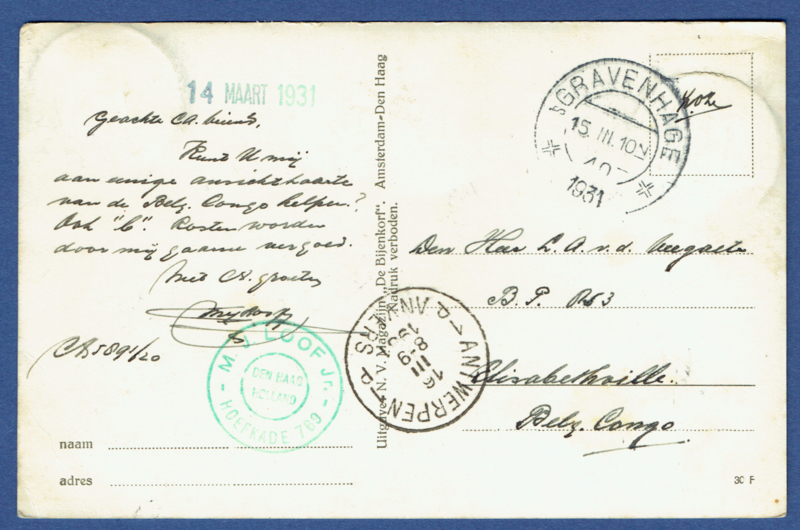 14 MAART 1931
Geachte CA. vriend,
Kunt U mij
aan eenige ansichtkaarten
van de Belg. Congo helpen?
Ook "b". Kosten worden
door mij gaarne vergoed.
Met CA. groeten
M. J. LOOF Jr.
HOEFKADE 769
DEN HAAG
HOLLAND
naam
adres
Uitgave: N. V. Magazijn „De Bijenkorf". Amsterdam-Den Haag
Nadruk verboden.
'S GRAVENHAGE
15.III.10
1931
Den Heer L. A. v. d.
B. P.
Elisabethville
Belg. Congo
ANTWERPEN
ANVERS
16
III
8-9
30 F